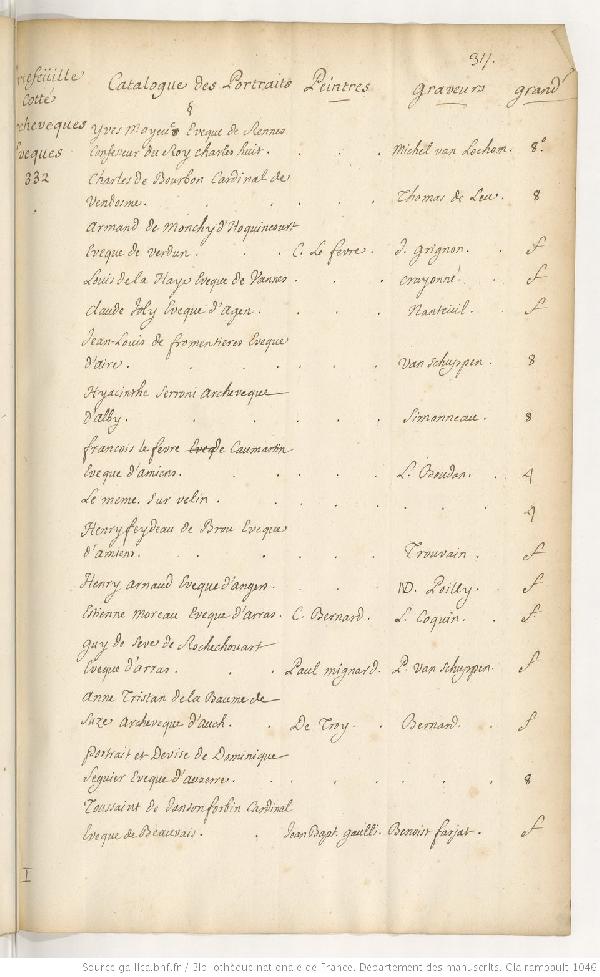 317.
Portefeüille Catalogue des Portraits Peintres Graveurs grand
Cotté §
Archeveques Yves Moyeuc Eveque de Rennes
Eveques Confesseur du Roy charles huit. Michel van Lochom. 8º
332 Charles de Bourbon Cardinal de
Vendosme. Thomas de Leu. 8
Armand de Monchy d'Hoquincourt
Eveque de verdun. C. Le fevre. J. Grignon. f
Louis de la Haye Eveque de Vannes crayonné. f
Claude Joly Eveque d'Agen. Nanteüil. f
Jean-Louis de fromentieres Eveque
d'aire. van schuppen. 8
Hyacinthe Serroni Archeveque
d'alby. Simonneau. 8
françois le fevre de Caumartin
Eveque d'amiens. L. Boudan. 4
Le meme. sur velin. 4
Henry feydeau de Brou Eveque
d'amiens. Trouvain. f
Henry Arnaud Eveque d'angers. N. Poilly. f
Etienne moreau Eveque d'arras. C. Bernard. L. Coquin. f
guy de seve de Rochechouart
Eveque d'arras. Paul mignard. P. van schuppen. f
Anne Tristan de la Baume de
Suze Archeveque d'Auch. De Troy. Bernard. f
Portrait et Devise de Dominique
Seguier Eveque d'auxerre. 8
Toussaint de Janson forbin Cardinal
Eveque de Beauvais. Jean Bapt. gaulli. Benoist farjat. f
I
Source gallica.bnf.fr / Bibliothèque nationale de France. Département des manuscrits. Clairambault 1046